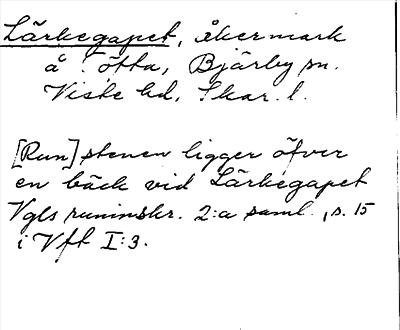 Lärkegapet, åkermark
å ötta, Bjärby sn.
Viste hd. Skar. l.
[Run]stenen ligger öfver
en bäck vid Lärkegapet
Vgls runinskr. 2:a saml., s. 15
i Vft I:3.